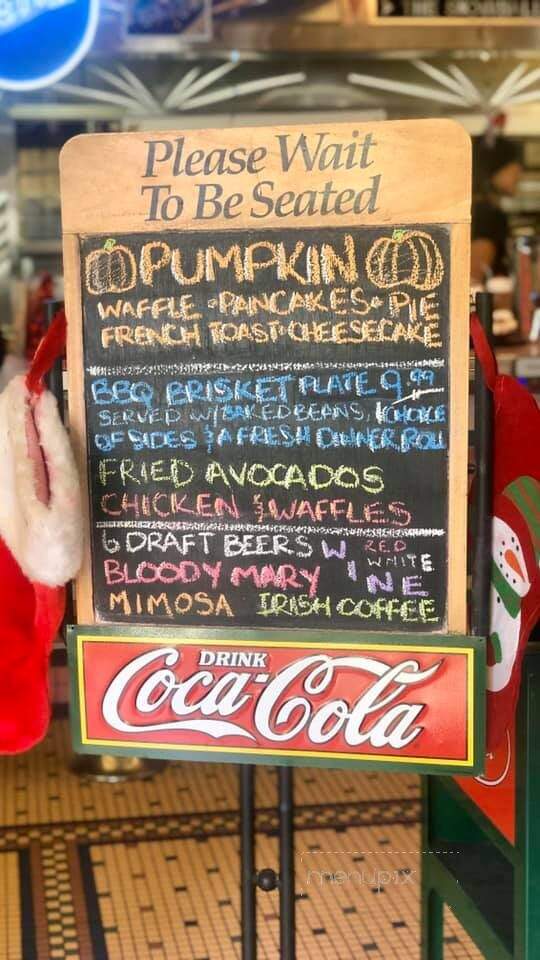 Please Wait
To Be Seated
PUMPKIN
WAFFLE • PANCAKES • PIE
FRENCH TOAST • CHEESECAKE
BBQ BRISKET PLATE 9.99
SERVED W/ BAKED BEANS, 1 CHOICE
OF SIDES & A FRESH DINNER ROLL
FRIED AVOCADOS
CHICKEN & WAFFLES
6 DRAFT BEERS WINE RED
WHITE
BLOODY MARY
MIMOSA IRISH COFFEE
DRINK
Coca-Cola
menupix